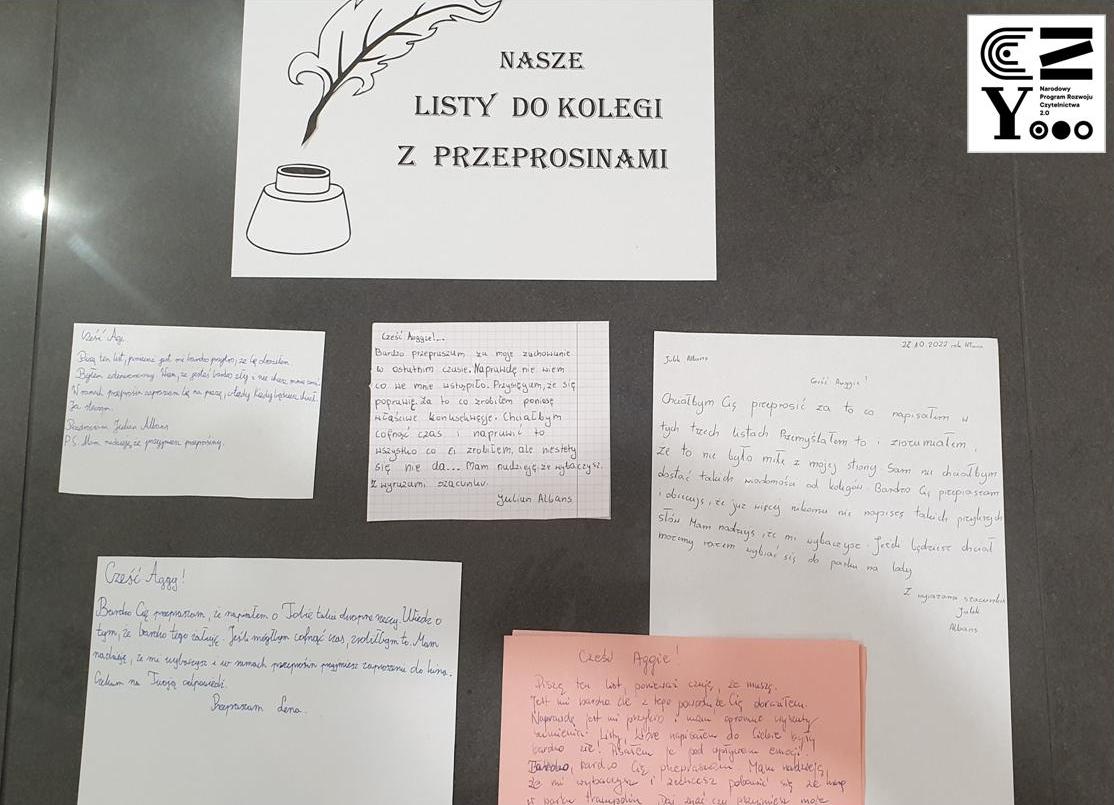 NASZE
LISTY DO KOLEGI
Z PRZEPROSINAMI
Narodowy
Program Rozwoju
Czytelnictwa
2.0
Cześć Agi.
Piszę ten list, ponieważ jest mi bardzo przykro, że Cię
Byłem zdenerwowany. Wiem, że jesteś bardzo zły i nie chcesz mnie
W ramach przeprosin zapraszam Cię na pizzę, wtedy kiedy będziesz chciał.
Pozdrawiam Julian Albans
P.S. Mam nadzieję, że przyjmiesz przeprosiny.
Cześć Auggie!...
Bardzo przepraszam za moje zachowanie
w ostatnim czasie. Naprawdę nie wiem
co we mnie wstąpiło. Przysięgam, że się
poprawię. Za to co zrobiłem poniosę
właściwe konsekwencje. Chciałbym
cofnąć czas i naprawić to
wszystko co Ci zrobiłem, ale niestety
się nie da... Mam nadzieję, że wybaczysz.
Z wyrazami szacunku.
Julian Albans
28.10.2022 rok
Julek Albans
Cześć Auggie!
Chciałbym Cię przeprosić za to co napisałem w
tych trzech listach. Przemyślałem to i zrozumiałem,
że to nie było miłe z mojej strony. Sam nie chciałbym
dostać takich wiadomości od kolegów. Bardzo Cię przepraszam
i obiecuję, że już więcej nikomu nie napiszę takich przykrych
słów. Mam nadzieję, że mi wybaczysz. Jeżeli będziesz chciał
możemy razem wybrać się do parku na lody
Z wyrazami szacunku
Julek
Albans
Cześć Aggy!
Bardzo Cię przepraszam, że napisałem o Tobie takie okropne rzeczy. Wiedz o
tym, że bardzo tego żałuję. Jeśli mógłbym cofnąć czas, zrobiłbym to. Mam
nadzieję, że mi wybaczysz i w ramach przeprosin przyjmiesz zaproszenie do kina.
Czekam na Twoją odpowiedź.
Przepraszam Lena.
Cześć Aggie!
Piszę ten list, ponieważ czuję, że muszę.
Jest mi bardzo źle z tego powodu, że Cię obraziłem.
Naprawdę jest mi przykro i mam ogromne wyrzuty
sumienia. Listy, które napisałem do Ciebie były
bardzo złe! Pisałem je pod wpływem emocji.
Bardzo, bardzo Cię przepraszam. Mam nadzieję,
że mi wybaczysz i zechcesz pobawić się ze mną
w parku trampolin. Daj znać czy przyjmiesz moje